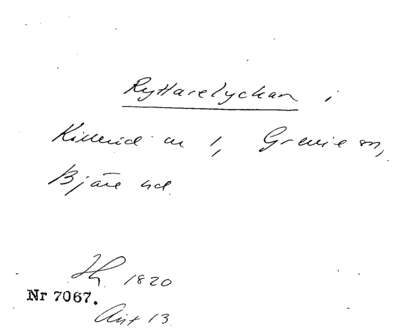 Ryttarelyckan i
Killeröd nr 1, Grevie sn,
Bjäre hd.
1820
Nr 7067.
13